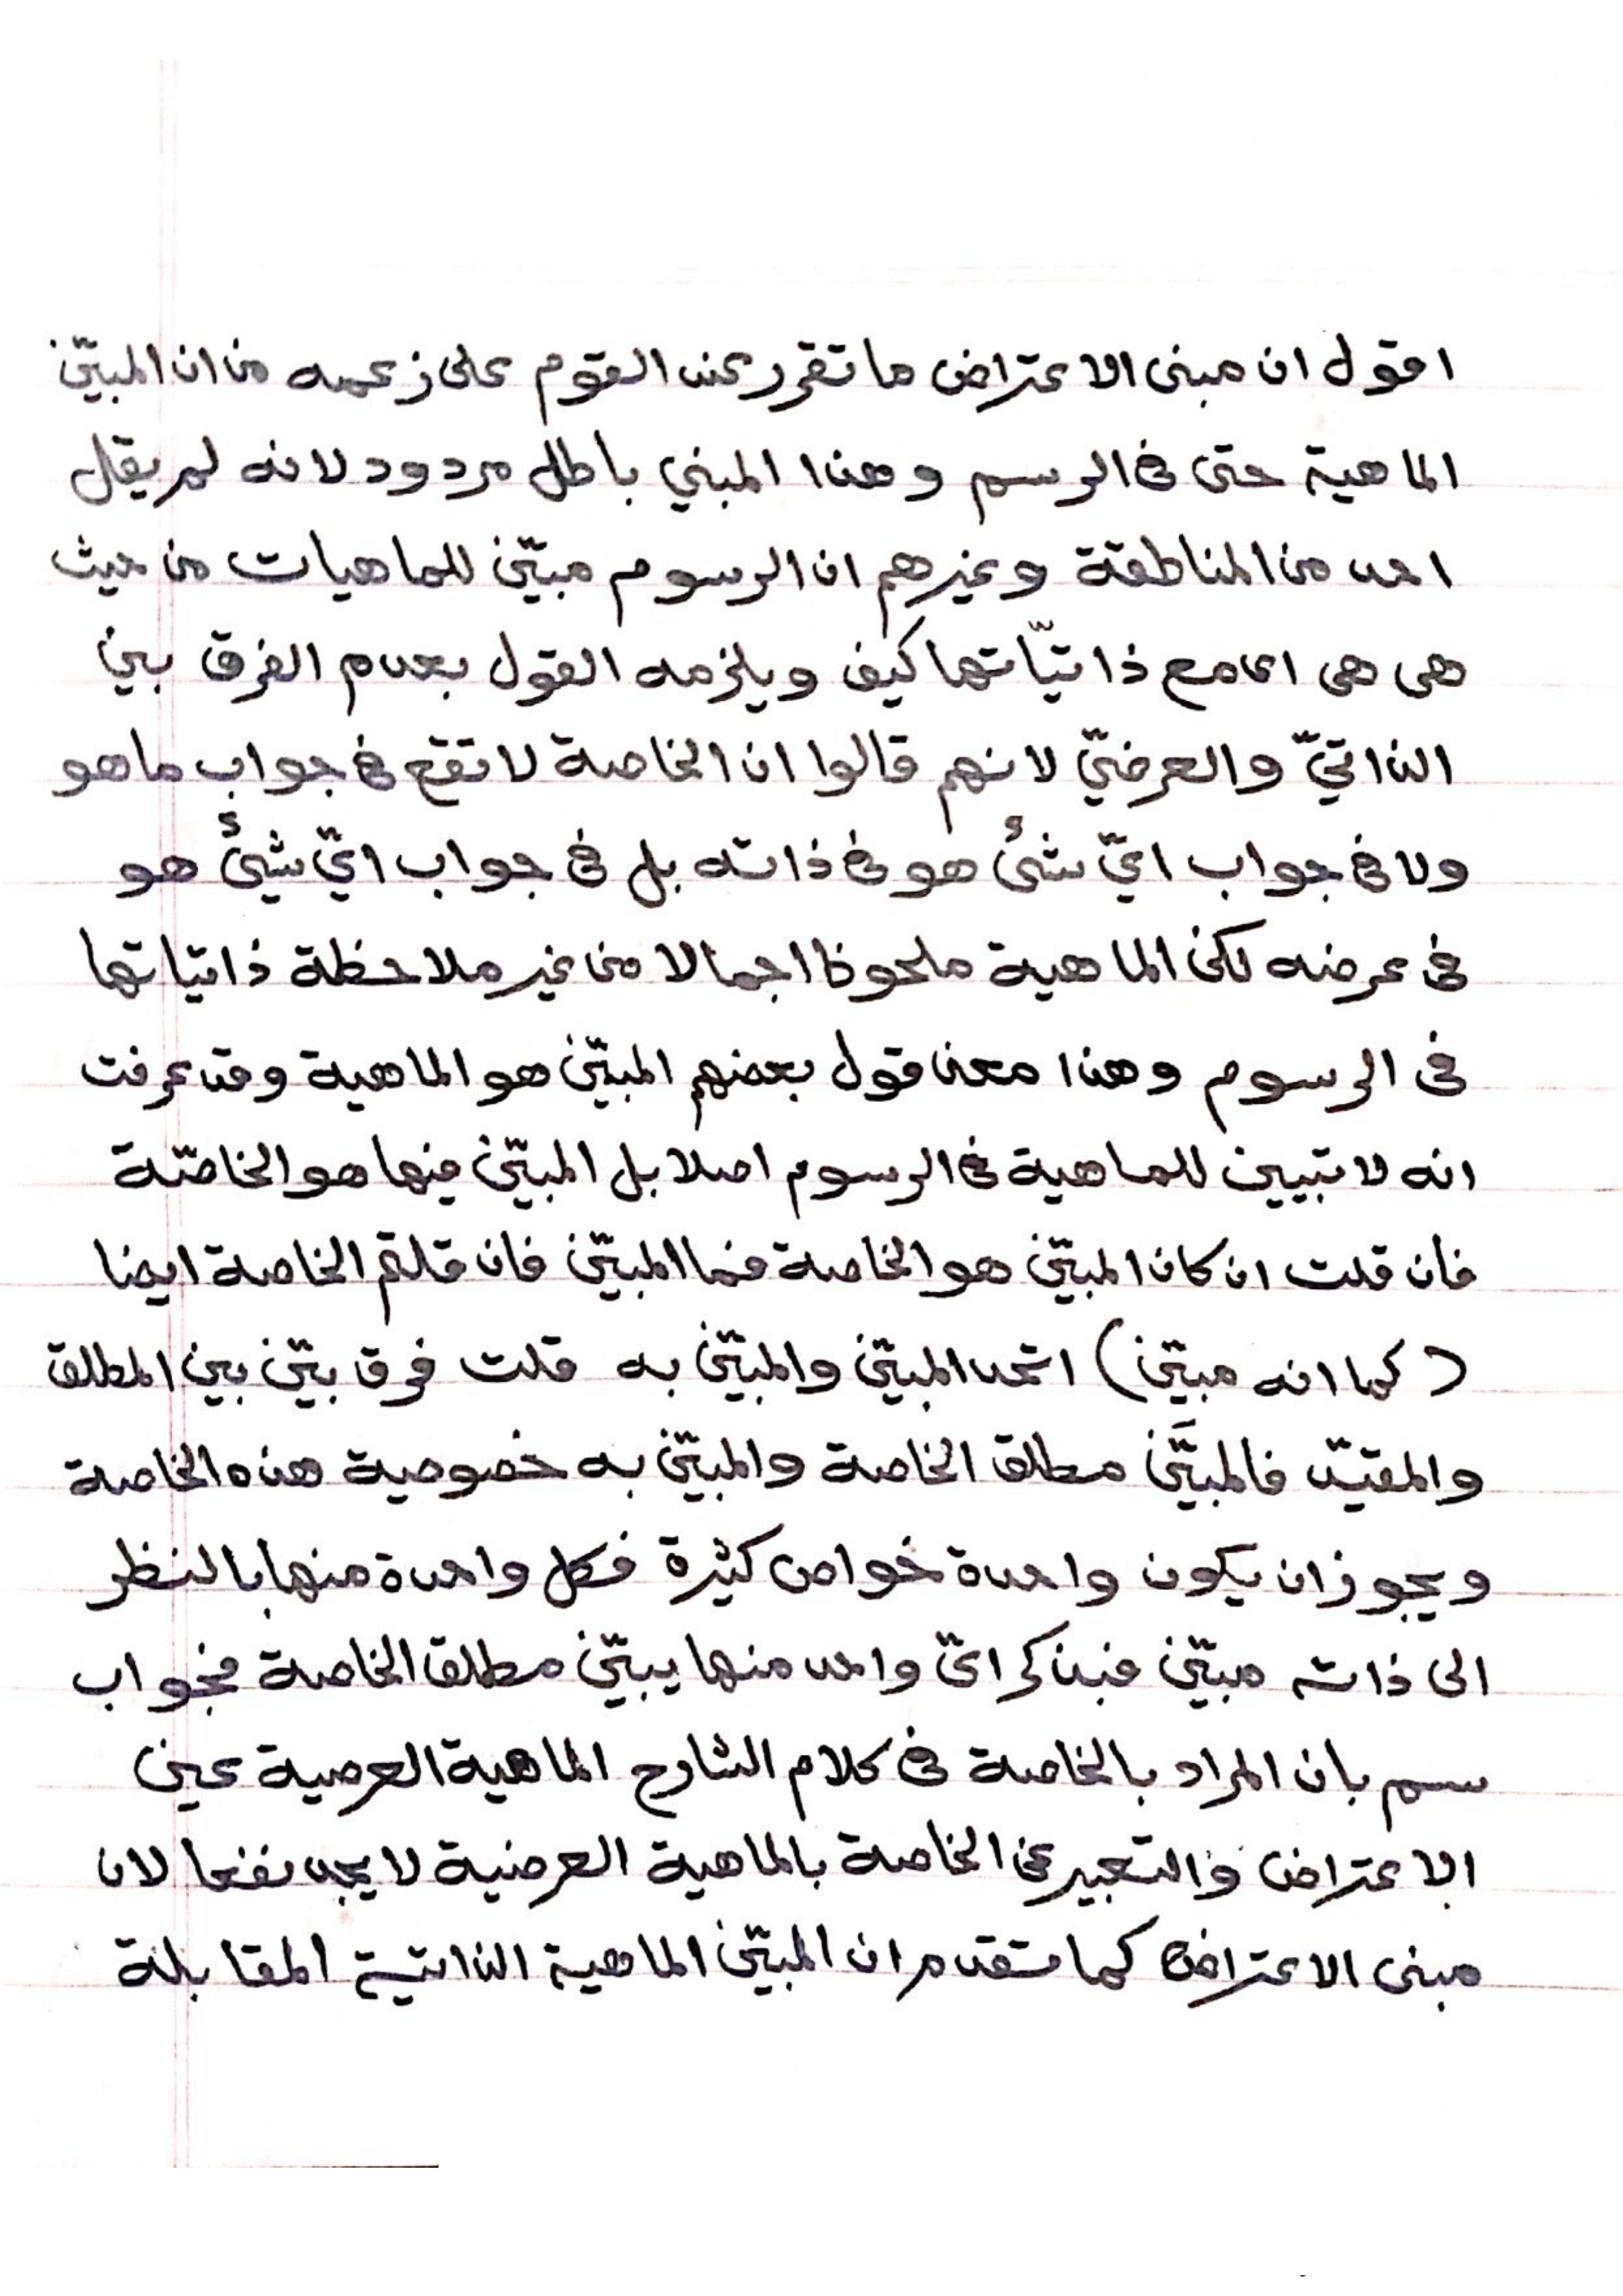 اقول ان مبنى الاعتراض ما تقرر عند القوم على زعمه من ان المبيّن
الماهية حتى فى الرسم وهذا المبني باطل مردود لانه لم يقل
احد من المناطقة وغيرهم ان الرسوم مبيّن للماهيات من حيث
هى هى اى مع ذاتيّاتها كيف ويلزمه القول بعدم الفرق بين
الذاتيّ والعرضيّ لانهم قالوا ان الخاصة لا تقع فى جواب ما هو
ولا فى جواب ايّ شئ هو فى ذاته بل فى جواب ايّ شيئ هو
فى عرضه لكن الماهية ملحوظ اجمالا من غير ملاحظة ذاتياتها
فى الرسوم وهذا معنى قول بعضهم المبيّن هو الماهية وقد عرفت
انه لا تبيين للماهية فى الرسوم اصلا بل المبيّن فيها هو الخاصّة
فان قلت ان كان المبيّن هو الخاصة فما المبيّن فان قلتم الخاصة ايضا
(كما انه مبيّن) اتحد المبيّن والمبيّن به قلت فرق بيّن بين المطلق
والمقيّد فالمبيَّن مطلق الخاصة والمبيّن به خصوصية هذه الخاصة
ويجوز ان يكون واحدة خواص كثيرة فكل واحدة منها بالنظر
الى ذاته مبيّن فبذكر ايّ واحد منها يبيّن مطلق الخاصة فجواب
سم بان المراد بالخاصة فى كلام الشارح الماهية العرصية عين
الاعتراض والتعبير عن الخاصة بالماهية العرضية لا يجد نفعا لان
مبنى الاعتراض كما تقدم ان المبيّن الماهية الذاتية المقابلة